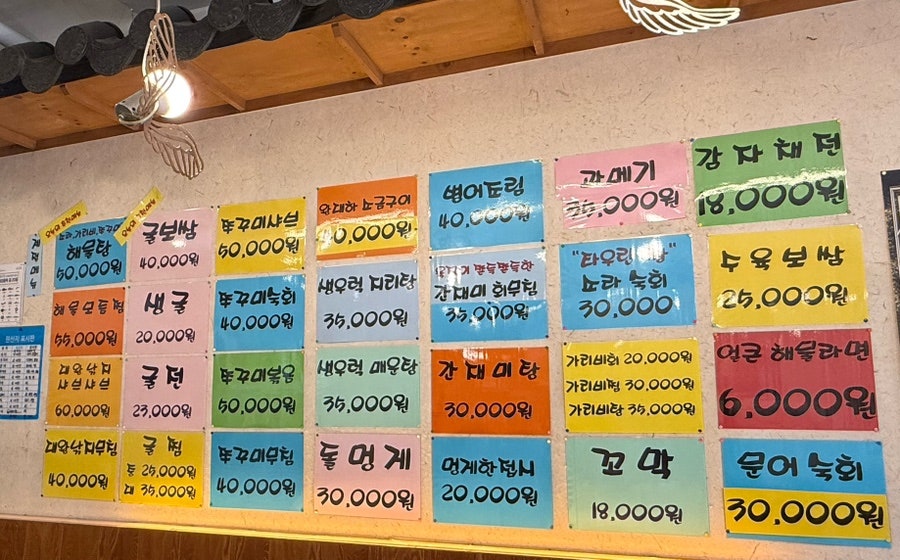 해물탕
50,000원
굴보쌈
40,000원
쭈꾸미샤브
50,000원
왕대하 소금구이
40,000원
병어조림
40,000원
과메기
35,000원
감자채전
18,000원
해물조찜
55,000원
생굴
20,000원
쭈꾸미숙회
40,000원
생우럭 지리탕
35,000원
간재미 회무침
35,000원
"타우린
소라 숙회
30,000
수육보쌈
25,000원
낙지
샤브샤브
60,000원
굴전
23,000원
쭈꾸미볶음
50,000원
생우럭 매운탕
35,000원
간재미탕
30,000원
가리비회 20,000원
가리비찜 30,000원
가리비탕 35,000원
얼큰 해물라면
6,000원
40,000원
굴찜
소 25,000원
대 35,000원
쭈꾸미무침
40,000원
돌멍게
30,000원
멍게한접시
20,000원
꼬막
18,000원
문어 숙회
30,000원